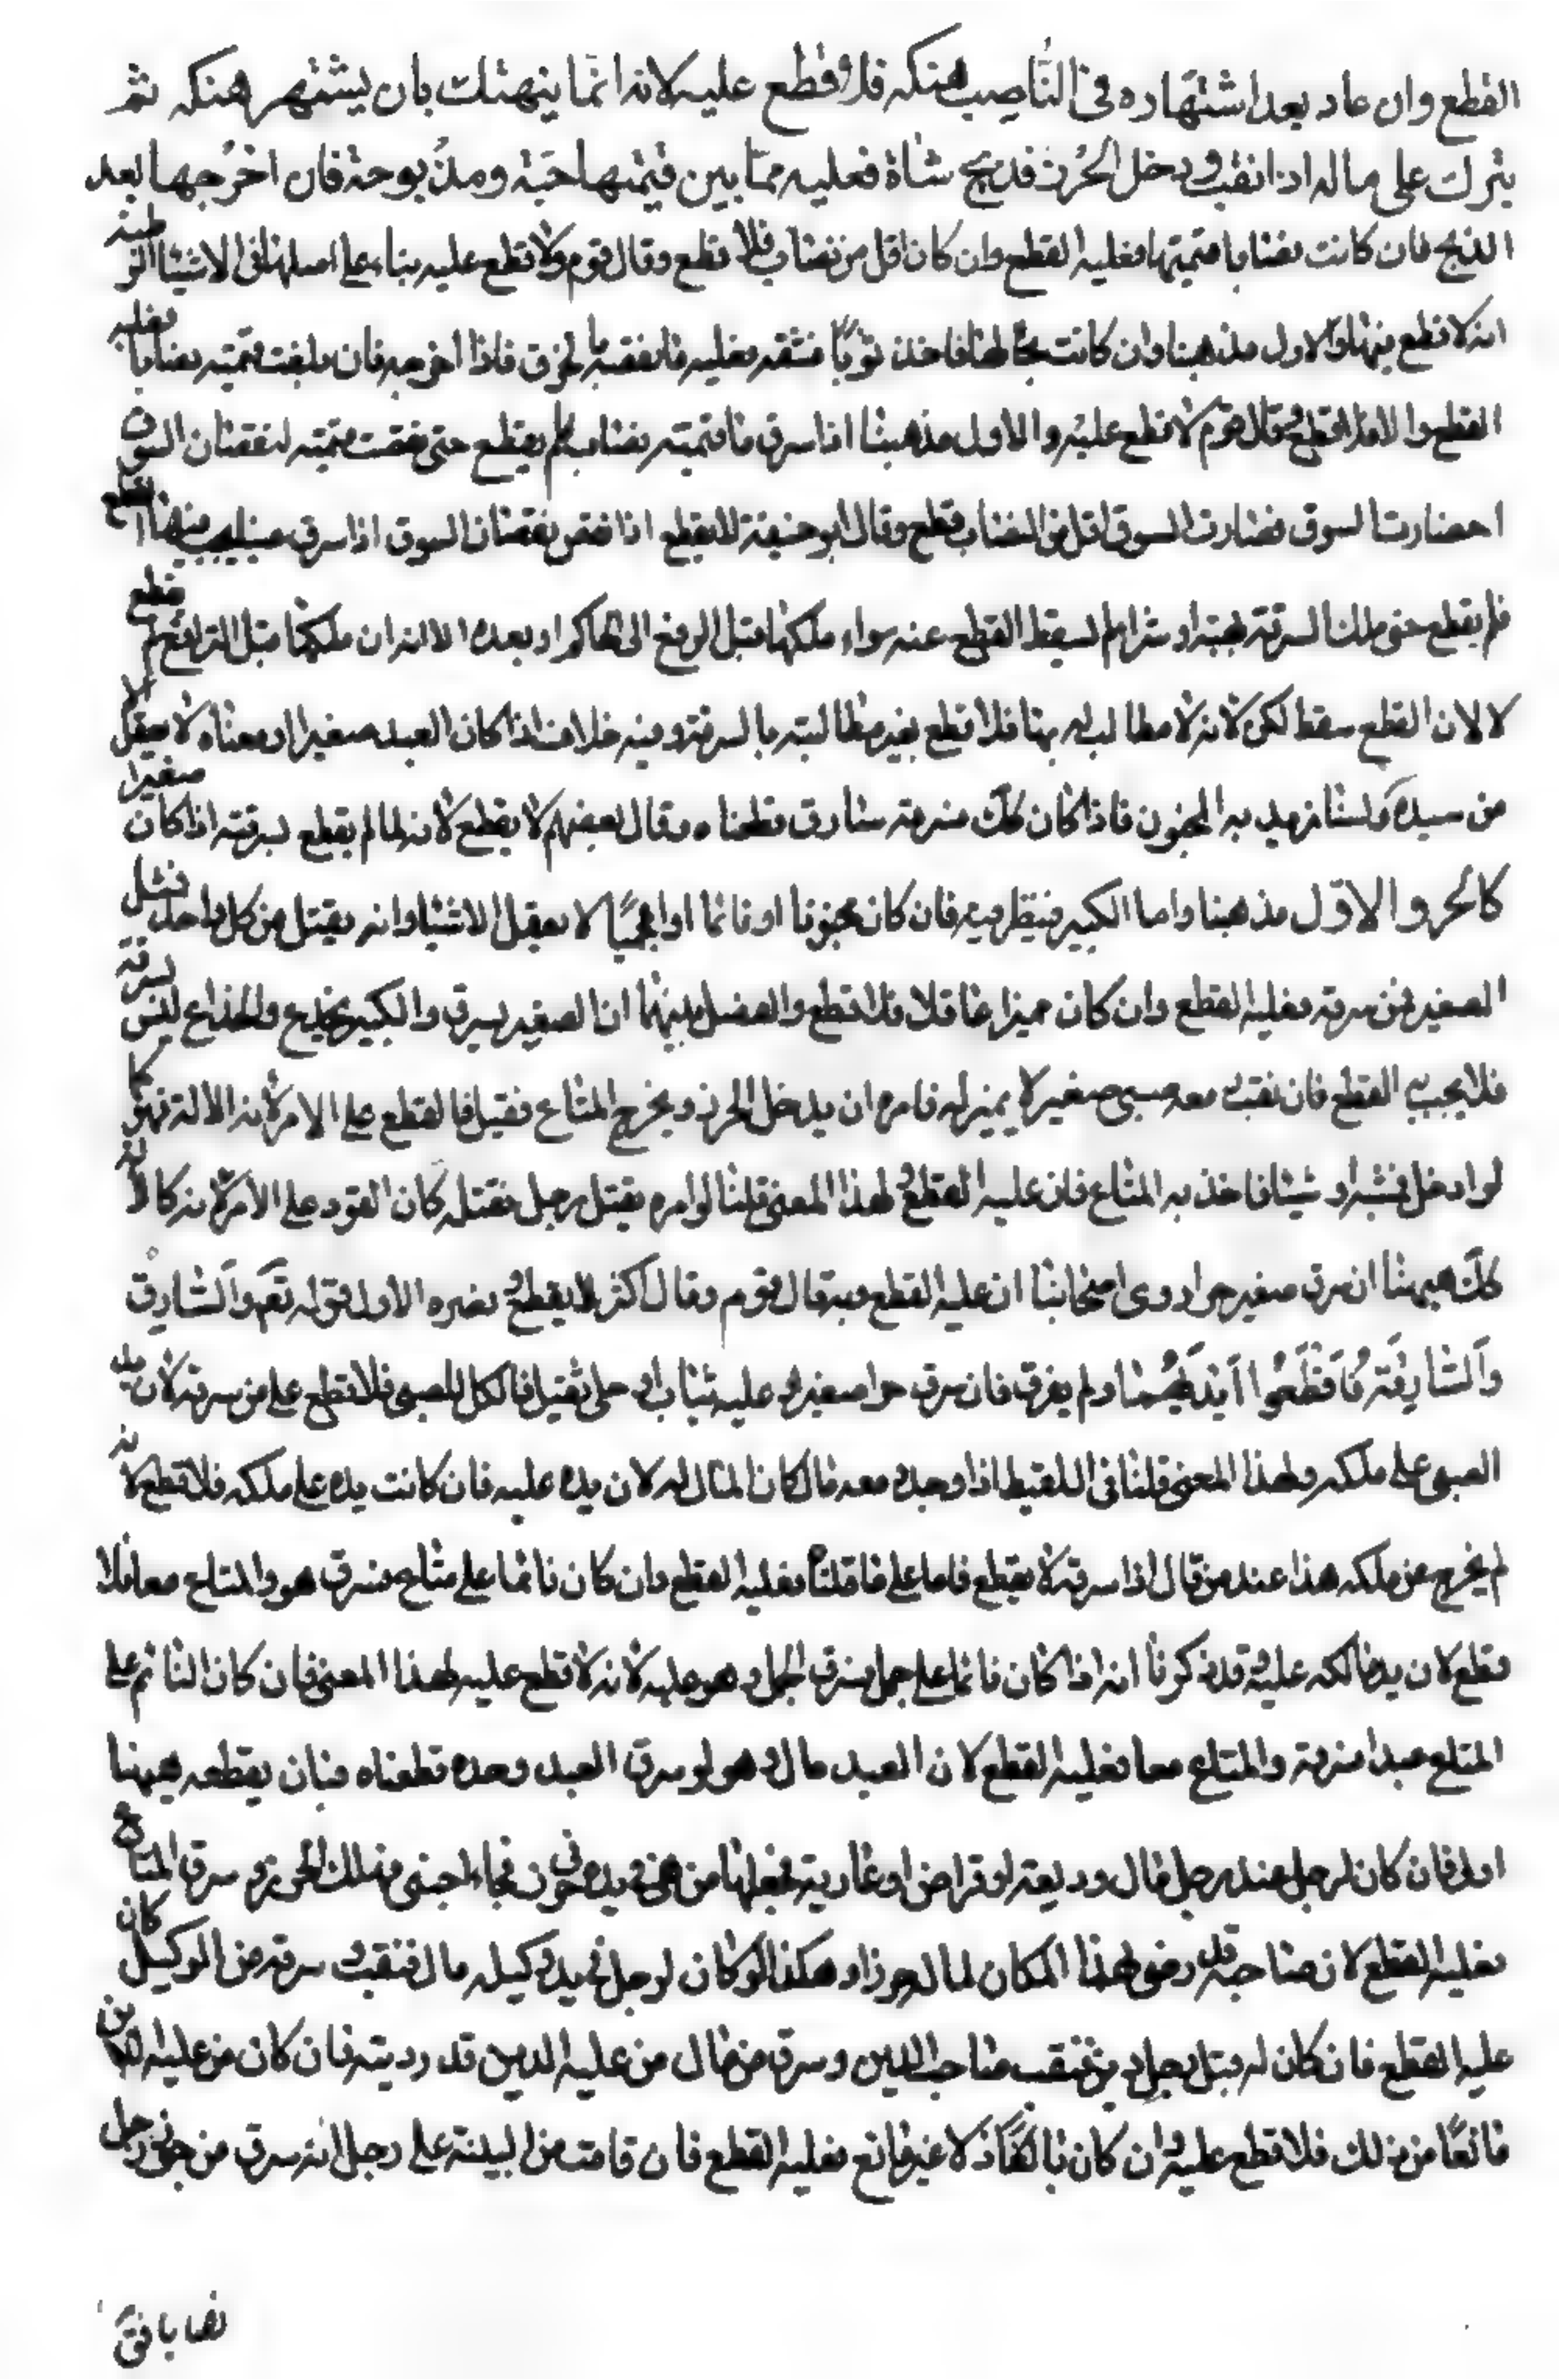 القطع وان عاد بعد اشتهاره فى الناس بهتكه فلا قطع عليه لانه انما ينهتك بان يشتهر هتكه ثم
يترك على ماله اذا نقب ودخل الحرز فذبح شاة فعليه ما بين قيمتها حية ومذبوحة فان اخرجها بعد
الذبح فان كانت نصابا قيمتها فعليه القطع وان كان اقل من نصاب فلا قطع وقال قوم لا قطع عليه بناء على اصلها فى الاشياء الرطبة
انه لا قطع فيها والاول مذهبنا وان كانت بحالها فاخذ ثوبا فشقه فعليه ما نقصه بالخرق فاذا اخرجه فان بلغت قيمته نصابا فعليه
القطع والا فلا قطع وقال قوم لا قطع عليه والاول مذهبنا اذا سرق ما قيمته نصاب فلم يقطع حتى نقصت قيمته لنقصان السوق
فصارت السوق اقل من النصاب قطع وقال ابو حنيفة لا يقطع اذا نقص لنقصان السوق اذا سرق عينا يجب فيها القطع
فلم يقطع حتى ملك السرقة بهبة او شراء لم يسقط القطع عنه سواء ملكها قبل الرفع الى الحاكم او بعده الا انه ان ملكها قبل الترافع لم يقطع
لا لان القطع سقط لكن لانه لا مطالب له بها فلا قطع بغير مطالبته بالسرقة وفيه خلاف اذا كان العبد صغيرا ومعناه لا يعقل الا
من سيده ولسنا نريد به المجنون فاذا كان كك فسرقه سارق قطعناه وقال بعضهم لا يقطع لانه لما لم يقطع بسرقته اذا كان صغيرا
كالحر والاول مذهبنا واما الكبير فينظر فيه فان كان مجنونا او نائما او اعجميا لا يعقل الاشياء وانه يقبل من كل واحد مثل
الصغير فمن سرقه فعليه القطع وان كان مميزا عاقلا فلا قطع والفصل بينهما ان الصغير يسرق والكبير يخدع والخداع ليس بسرقة
فلا يجب به القطع فان نقب معه صبى صغير لا يميز له فامره ان يدخل الحرز ويخرج المتاع فقبل فالقطع على الامر لانه كالالة فهو كما
لو ادخل خشبة او شيئا فاخذ به المتاع فان عليه القطع لهذا المعنى قلنا لو امره بقتل رجل فقتله كان القود على الامر لانه كالالة
كك هيهنا ان سرق صغيرا حرا روى اصحابنا ان عليه القطع وبه قال قوم وقال اكثرهم لا يقطع ونصره الاول قوله تعالى والسارق
والسارقة فاقطعوا ايديهما ولم يفرق فان سرق حرا صغيرا وعليه ثياب او حلى ثقيل فالكل للصبى فلا قطع على من سرقه لان يد
الصبى على ملكه ولهذا المعنى قلنا فى اللقيط اذا وجد ومعه مال كان المال له لان يده عليه فان كانت يده على ملكه فلا قطع لانه
لم يخرج عن ملكه هذا عند من قال اذا سرقه لا يقطع فاما على ما قلناه فعليه القطع وان كان نائما على متاع فسرق هو والمتاع معا فلا
قطع لان يد مالكه عليه وقد ذكرنا انه اذا كان نائما على جمل فسرق الجمل وهو عليه لانه لا قطع عليه لهذا المعنى فان كان النائم على
المتاع عبدا فسرقه والمتاع معا فعليه القطع لان العبد مال وهو لو سرق العبد وحده قطعناه فبان يقطعه هيهنا
اولى فان كان لرجل عند رجل مال وديعة او قراض او عارية فجعلها من هى فى يده فى حرز فجاء اجنبى فهتك الحرز وسرق المتاع
فعليه القطع لان صاحبه قد رضى بهذا المكان لماله حرزا وهكذا لو كان لرجل فى يد وكيله مال فنقب وسرقه من الوكيل كان
عليه القطع فان كان له قبل رجل دين فنقب صاحب الدين وسرق من مال من عليه الدين قدر دينه فان كان من عليه الدين
مانعا من ذلك فلا قطع عليه وان كان باذلا غير مانع فعليه القطع فان قامت البينة على رجل انه سرق من حرز رجل
نصابا فق